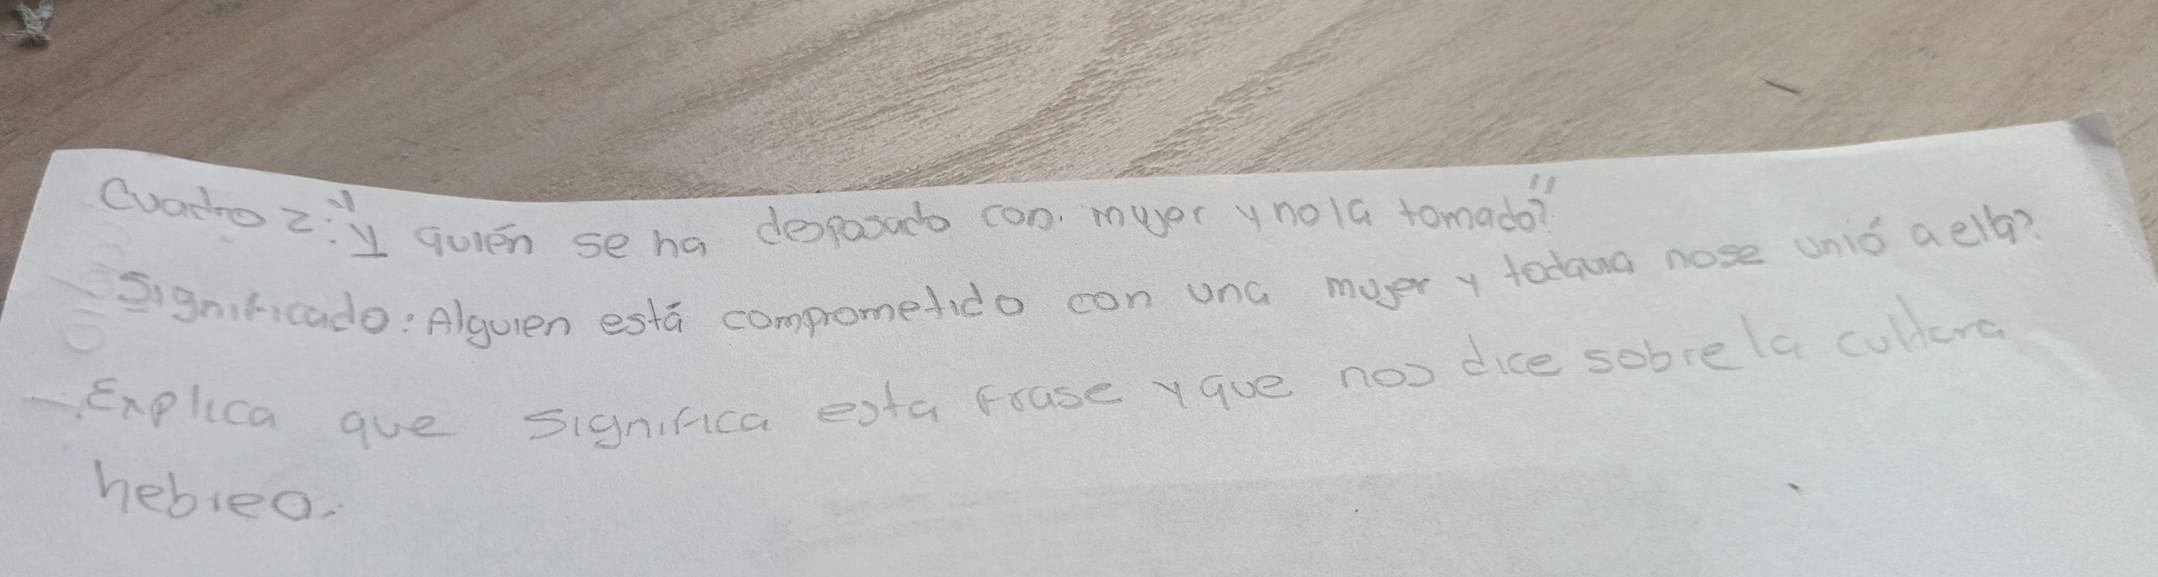 Cuadro 2: "Y quién se ha desposado con. mujer y no la tomado?"
Significado: Alguien está comprometido con una mujer y todavia nose unió a ella?
-. Explica que significa esta frase y que nos dice sobre la cultura
hebrea.